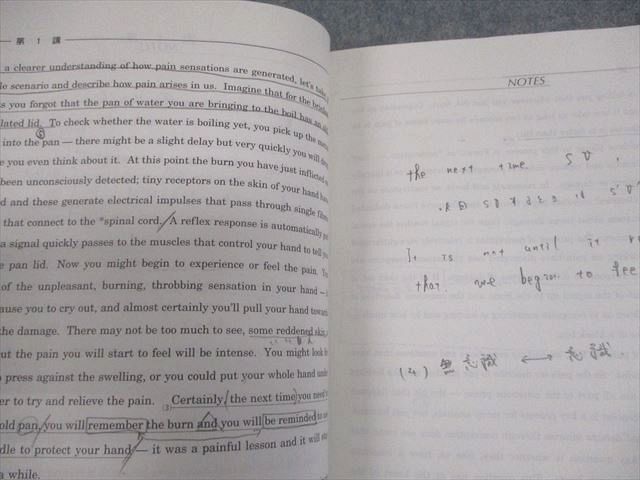 第 1 課
a clearer understanding of how pain sensations are generated, let's take
le scenario and describe how pain arises in us. Imagine that for the
s you forgot that the pan of water you are bringing to the boil has an
lated lid. To check whether the water is boiling yet, you pick up the
into the pan — there might be a slight delay but very quickly you will
e you even think about it. At this point the burn you have just inflicted
been unconsciously detected; tiny receptors on the skin of your hand have
d and these generate electrical impulses that pass through single
that connect to the *spinal cord. A reflex response is automatically
a signal quickly passes to the muscles that control your hand to tell you
e pan lid. Now you might begin to experience or feel the pain.
of the unpleasant, burning, throbbing sensation in your hand —
ause you to cry out, and almost certainly you'll pull your hand
the damage. There may not be too much to see, some reddened skin
ut the pain you will start to feel will be intense. You might look
o press against the swelling, or you could put your whole hand under
er to try and relieve the pain. (3)Certainly the next time you need
old pan, you will remember the burn and you will be reminded to
dle to protect your hand — it was a painful lesson and it will
a while.
NOTES
the next time S V ,
It is not until it
that we begin to fee
(4) 無意識 ⟷ 意識